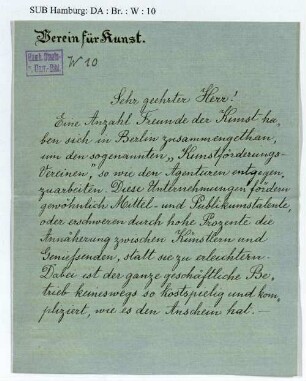 SUB Hamburg: DA : Br. : W : 10
Verein für Kunst.
W 10
Sehr geehrter Herr!
Eine Anzahl Freunde der Kunst ha-
ben sich in Berlin zusammengethan,
um den sogenannten „Kunstförderungs-
Vereinen", so wie den Agenturen entgegen-
zuarbeiten. Diese Unternehmungen fördern
gewöhnlich Mittel- und Publikumstalente,
oder erschweren durch hohe Prozente die
Annäherung zwischen Künstlern und
Genießenden, statt sie zu erleichtern.
Dabei ist der ganze geschäftliche Be-
trieb keineswegs so kostspielig und kom-
pliziert, wie es den Anschein hat. —